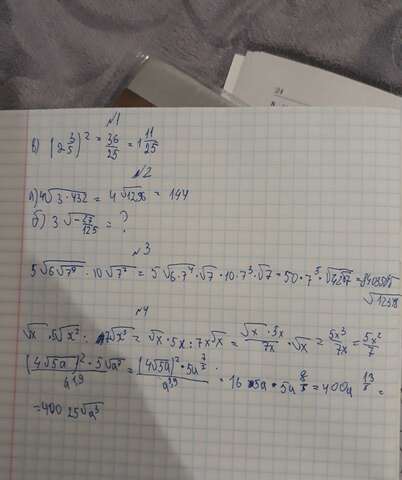 №1
в) (2 3/5)² = 36/25 = 1 11/25
№2
а) 4√3·432 = 4√1296 = 144
б) 3√-27/125 = ?
№3
5√6√7⁹ · 10√7⁷ = 5√6·7⁴·√7·10·7³·√7 = 50·7³·√
√12378
№4
√x · 5√x² : √x³ = √x · 5x : 7x√x = √x · 5x / 7x · √x = 5x³/7x = 5x²/7
(4√5a)² · 5√a / a = (4√5a)² · 5a / a = 16 · 5a · 5a = 400a =
= 400 25√a³